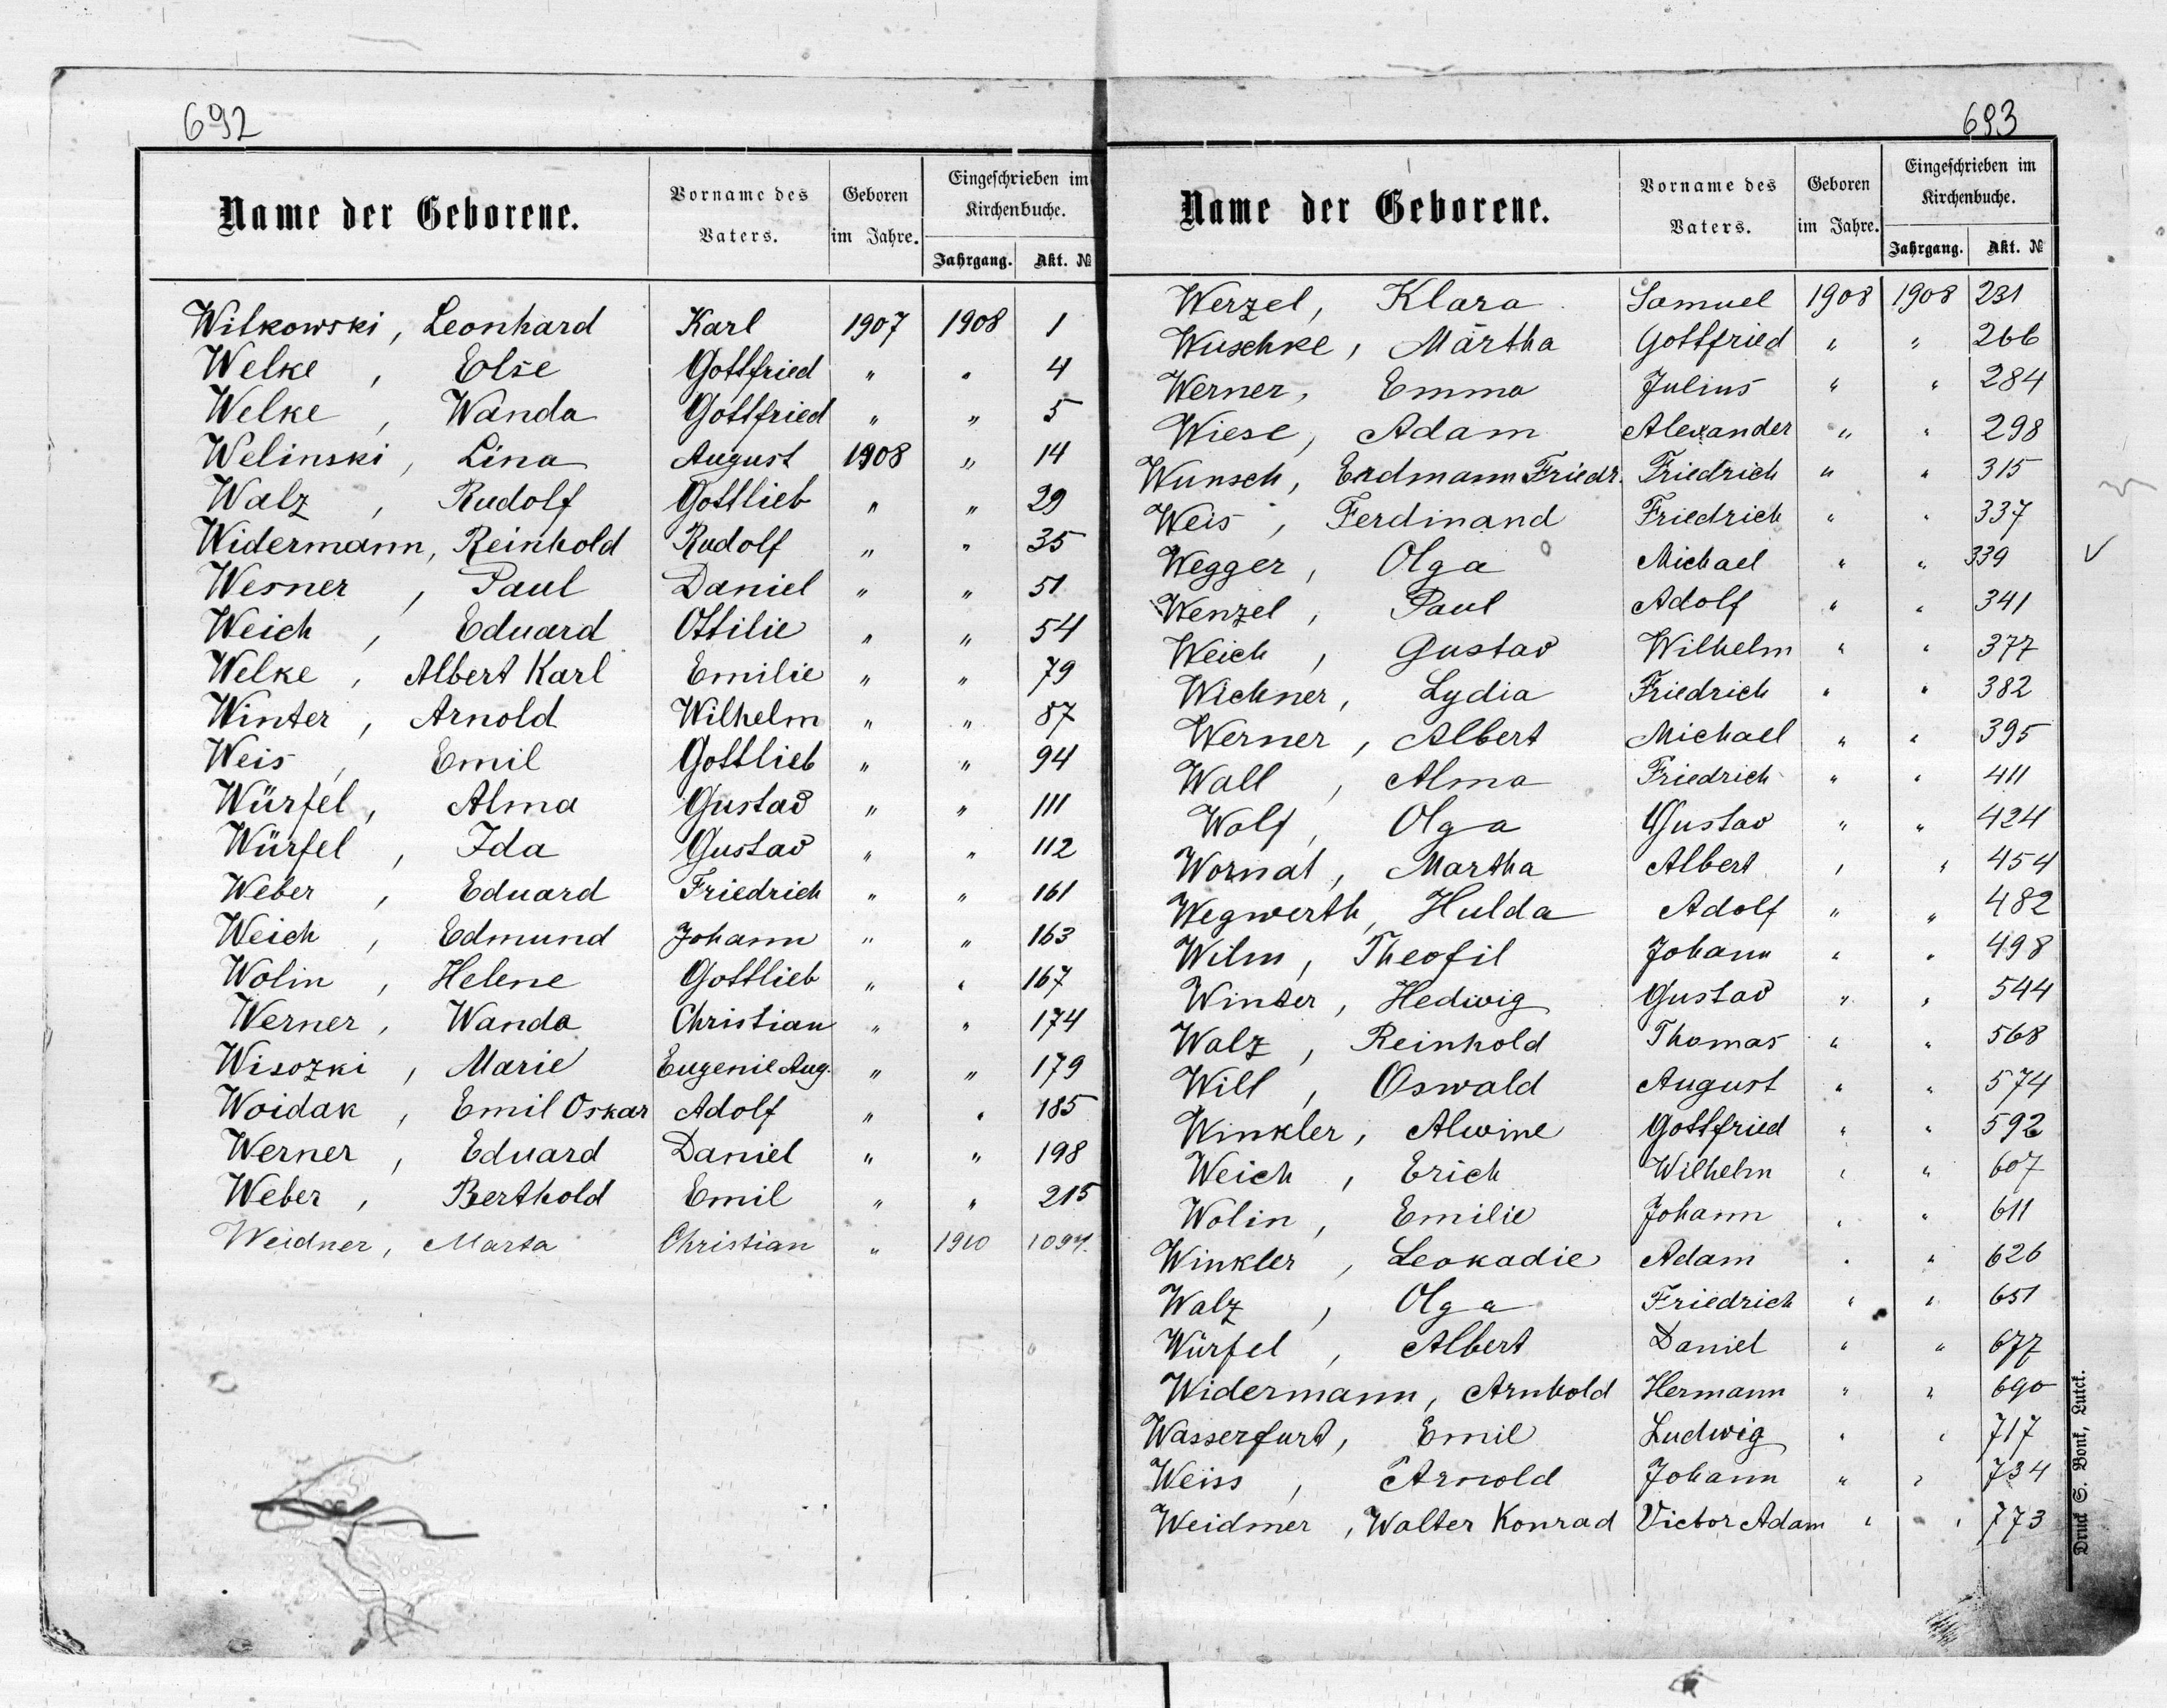 692
Name der Geborene. Vorname des Vaters. Geboren im Jahre. Eingeschrieben im Kirchenbuche. Jahrgang. Akt. №
Witkowski, Leonhard Karl 1907 1908 1
Welke, Else Gottfried " " 4
Welke, Wanda Gottfried " " 5
Welinski, Lina August 1908 " 14
Walz, Rudolf Gottlieb " " 29
Widermann, Reinhold Rudolf " " 35
Wesner, Paul Daniel " " 51
Weich, Eduard Ottilie " " 54
Welke, Albert Karl Emilie " " 79
Winter, Arnold Wilhelm " " 87
Weis, Emil Gottlieb " " 94
Würfel, Alma Gustav " " 111
Würfel, Ida Gustav " " 112
Weber, Eduard Friedrich " " 161
Weich, Edmund Johann " " 163
Wolin, Helene Gottlieb " " 167
Werner, Wanda Christian " " 174
Wisozki, Marie Eugenie Aug. " " 179
Woidak, Emil Oskar Adolf " " 185
Werner, Eduard Daniel " " 198
Weber, Berthold Emil " " 215
Weidner, Marta Christian " 1910
693
Name der Geborene. Vorname des Vaters. Geboren im Jahre. Eingeschrieben im Kirchenbuche. Jahrgang. Akt. №
Werzel, Klara Samuel 1908 1908 231
Wuschke, Martha Gottfried " " 266
Werner, Emma Julius " " 284
Wiese, Adam Alexander " " 298
Wunsch, Erdmann Friedr. Friedrich " " 315
Weis, Ferdinand Friedrich " " 337
Wegger, Olga Michael " " 339
Wenzel, Paul Adolf " " 341
Weich, Gustav Wilhelm " " 377
Wichner, Lydia Friedrich " " 382
Werner, Albert Michael " " 395
Wall, Alma Friedrich " " 411
Wolf, Olga Gustav " " 424
Wornat, Martha Albert " " 454
Wegwerth, Hulda Adolf " " 482
Wilm, Theofil Johann " " 498
Winter, Hedwig Gustav " " 544
Walz, Reinhold Thomas " " 568
Will, Oswald August " " 574
Winkler, Alwine Gottfried " " 592
Weich, Erich Wilhelm " " 607
Wolin, Emilie Johann " " 611
Winkler, Leokadie Adam " " 626
Walz, Olga Friedrich " " 651
Würfel, Albert Daniel " " 677
Widermann, Arnhold Hermann " " 690
Wasserfurt, Emil Ludwig " " 717
Weiss, Arnold Johann " " 734
Weidmer, Walter Konrad Victor Adam " " 773
Druck S. Bonk, Lutck.